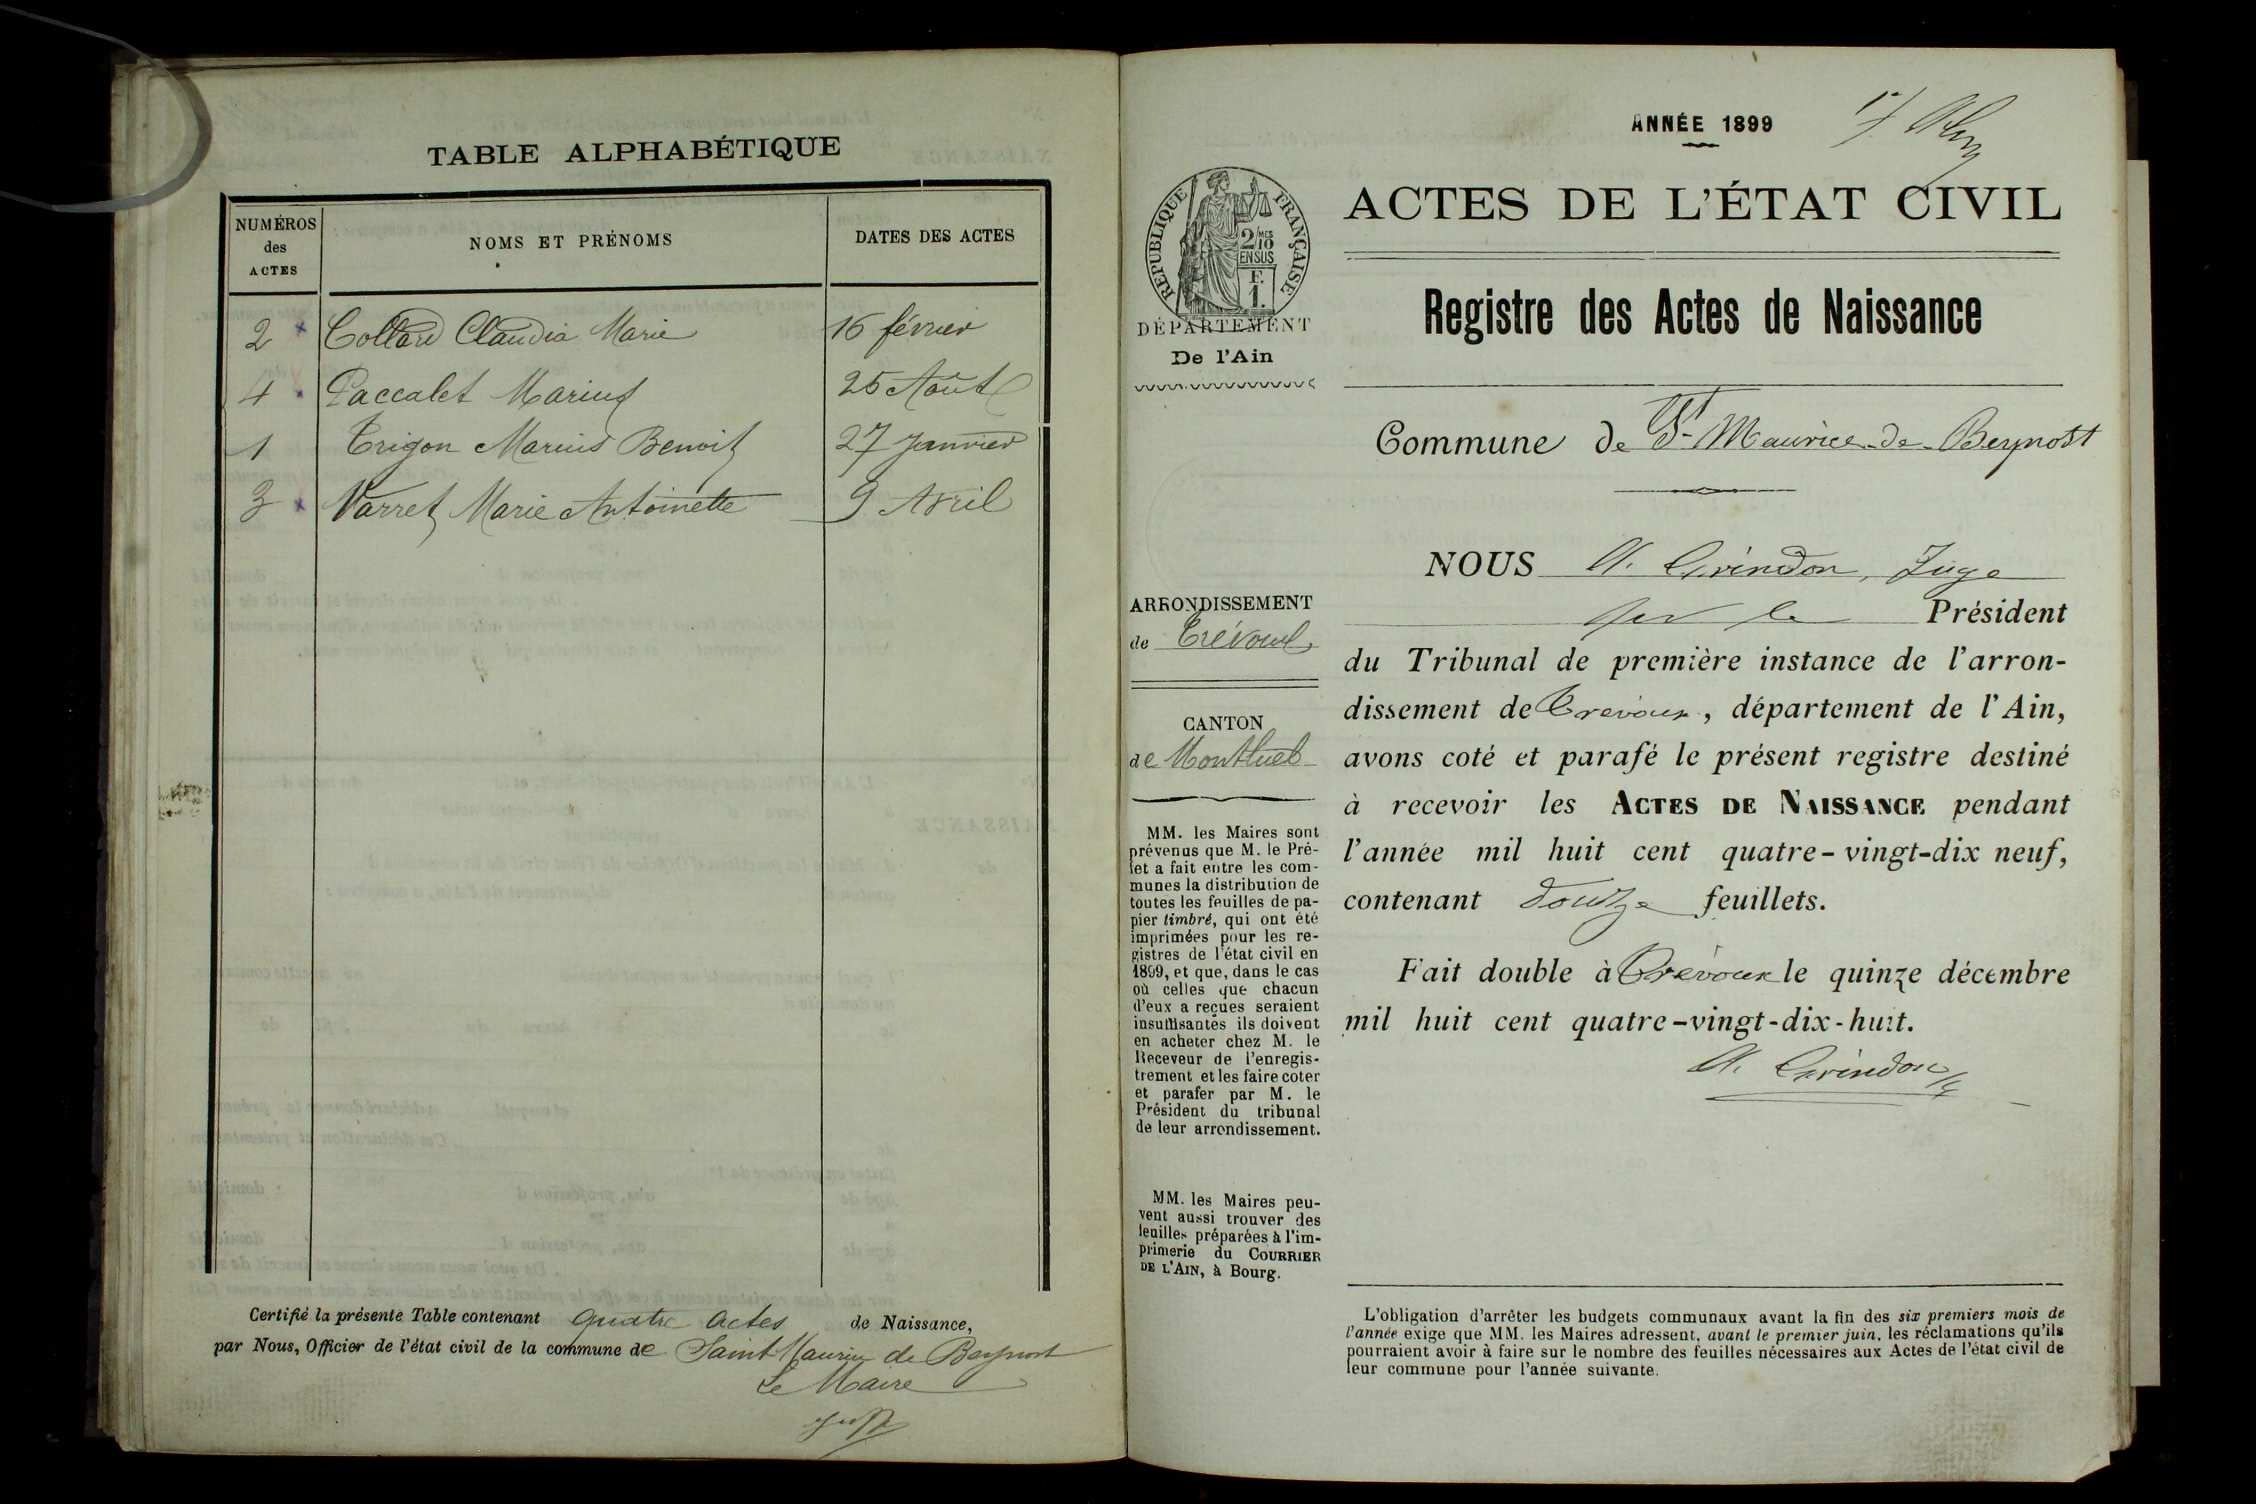 TABLE ALPHABÉTIQUE
NUMÉROS
des
ACTES
NOMS ET PRÉNOMS
DATES DES ACTES
2 Collard Claudia Marie 16 février
4 Paccalet Marius 25 Août
1 Trigon Marius Benoit 27 Janvier
3 Varret Marie Antoinette 9 Avril
Certifié la présente Table contenant quatre actes de Naissance,
par Nous, Officier de l'état civil de la commune de Saint Maurice de Beynost
Le Maire
ANNÉE 1899
RÉPUBLIQUE FRANÇAISE
2/10
MES
EN SUS
F.
1.
DÉPARTEMENT
De l'Ain
ARRONDISSEMENT
de Trévoux
CANTON
de Montluel
MM. les Maires sont
prévenus que M. le Pré-
fet a fait entre les com-
munes la distribution de
toutes les feuilles de pa-
pier timbré, qui ont été
imprimées pour les re-
gistres de l'état civil en
1899, et que, dans le cas
où celles que chacun
d'eux a reçues seraient
insuffisantes ils doivent
en acheter chez M. le
Receveur de l'enregis-
trement et les faire coter
et parafer par M. le
Président du tribunal
de leur arrondissement.
MM. les Maires peu-
vent aussi trouver des
feuilles préparées à l'im-
primerie du COURRIER
DE L'AIN, à Bourg.
ACTES DE L'ÉTAT CIVIL
Registre des Actes de Naissance
Commune de St Maurice-de-Beynost
NOUS A. Grindon, Juge
pr le Président
du Tribunal de première instance de l'arron-
dissement de Trévoux, département de l'Ain,
avons coté et parafé le présent registre destiné
à recevoir les ACTES DE NAISSANCE pendant
l'année mil huit cent quatre-vingt-dix neuf,
contenant douze feuillets.
Fait double à Trévoux le quinze décembre
mil huit cent quatre-vingt-dix-huit.
A. Grindon
L'obligation d'arrêter les budgets communaux avant la fin des six premiers mois de
l'année exige que MM. les Maires adressent, avant le premier juin, les réclamations qu'ils
pourraient avoir à faire sur le nombre des feuilles nécessaires aux Actes de l'état civil de
leur commune pour l'année suivante.